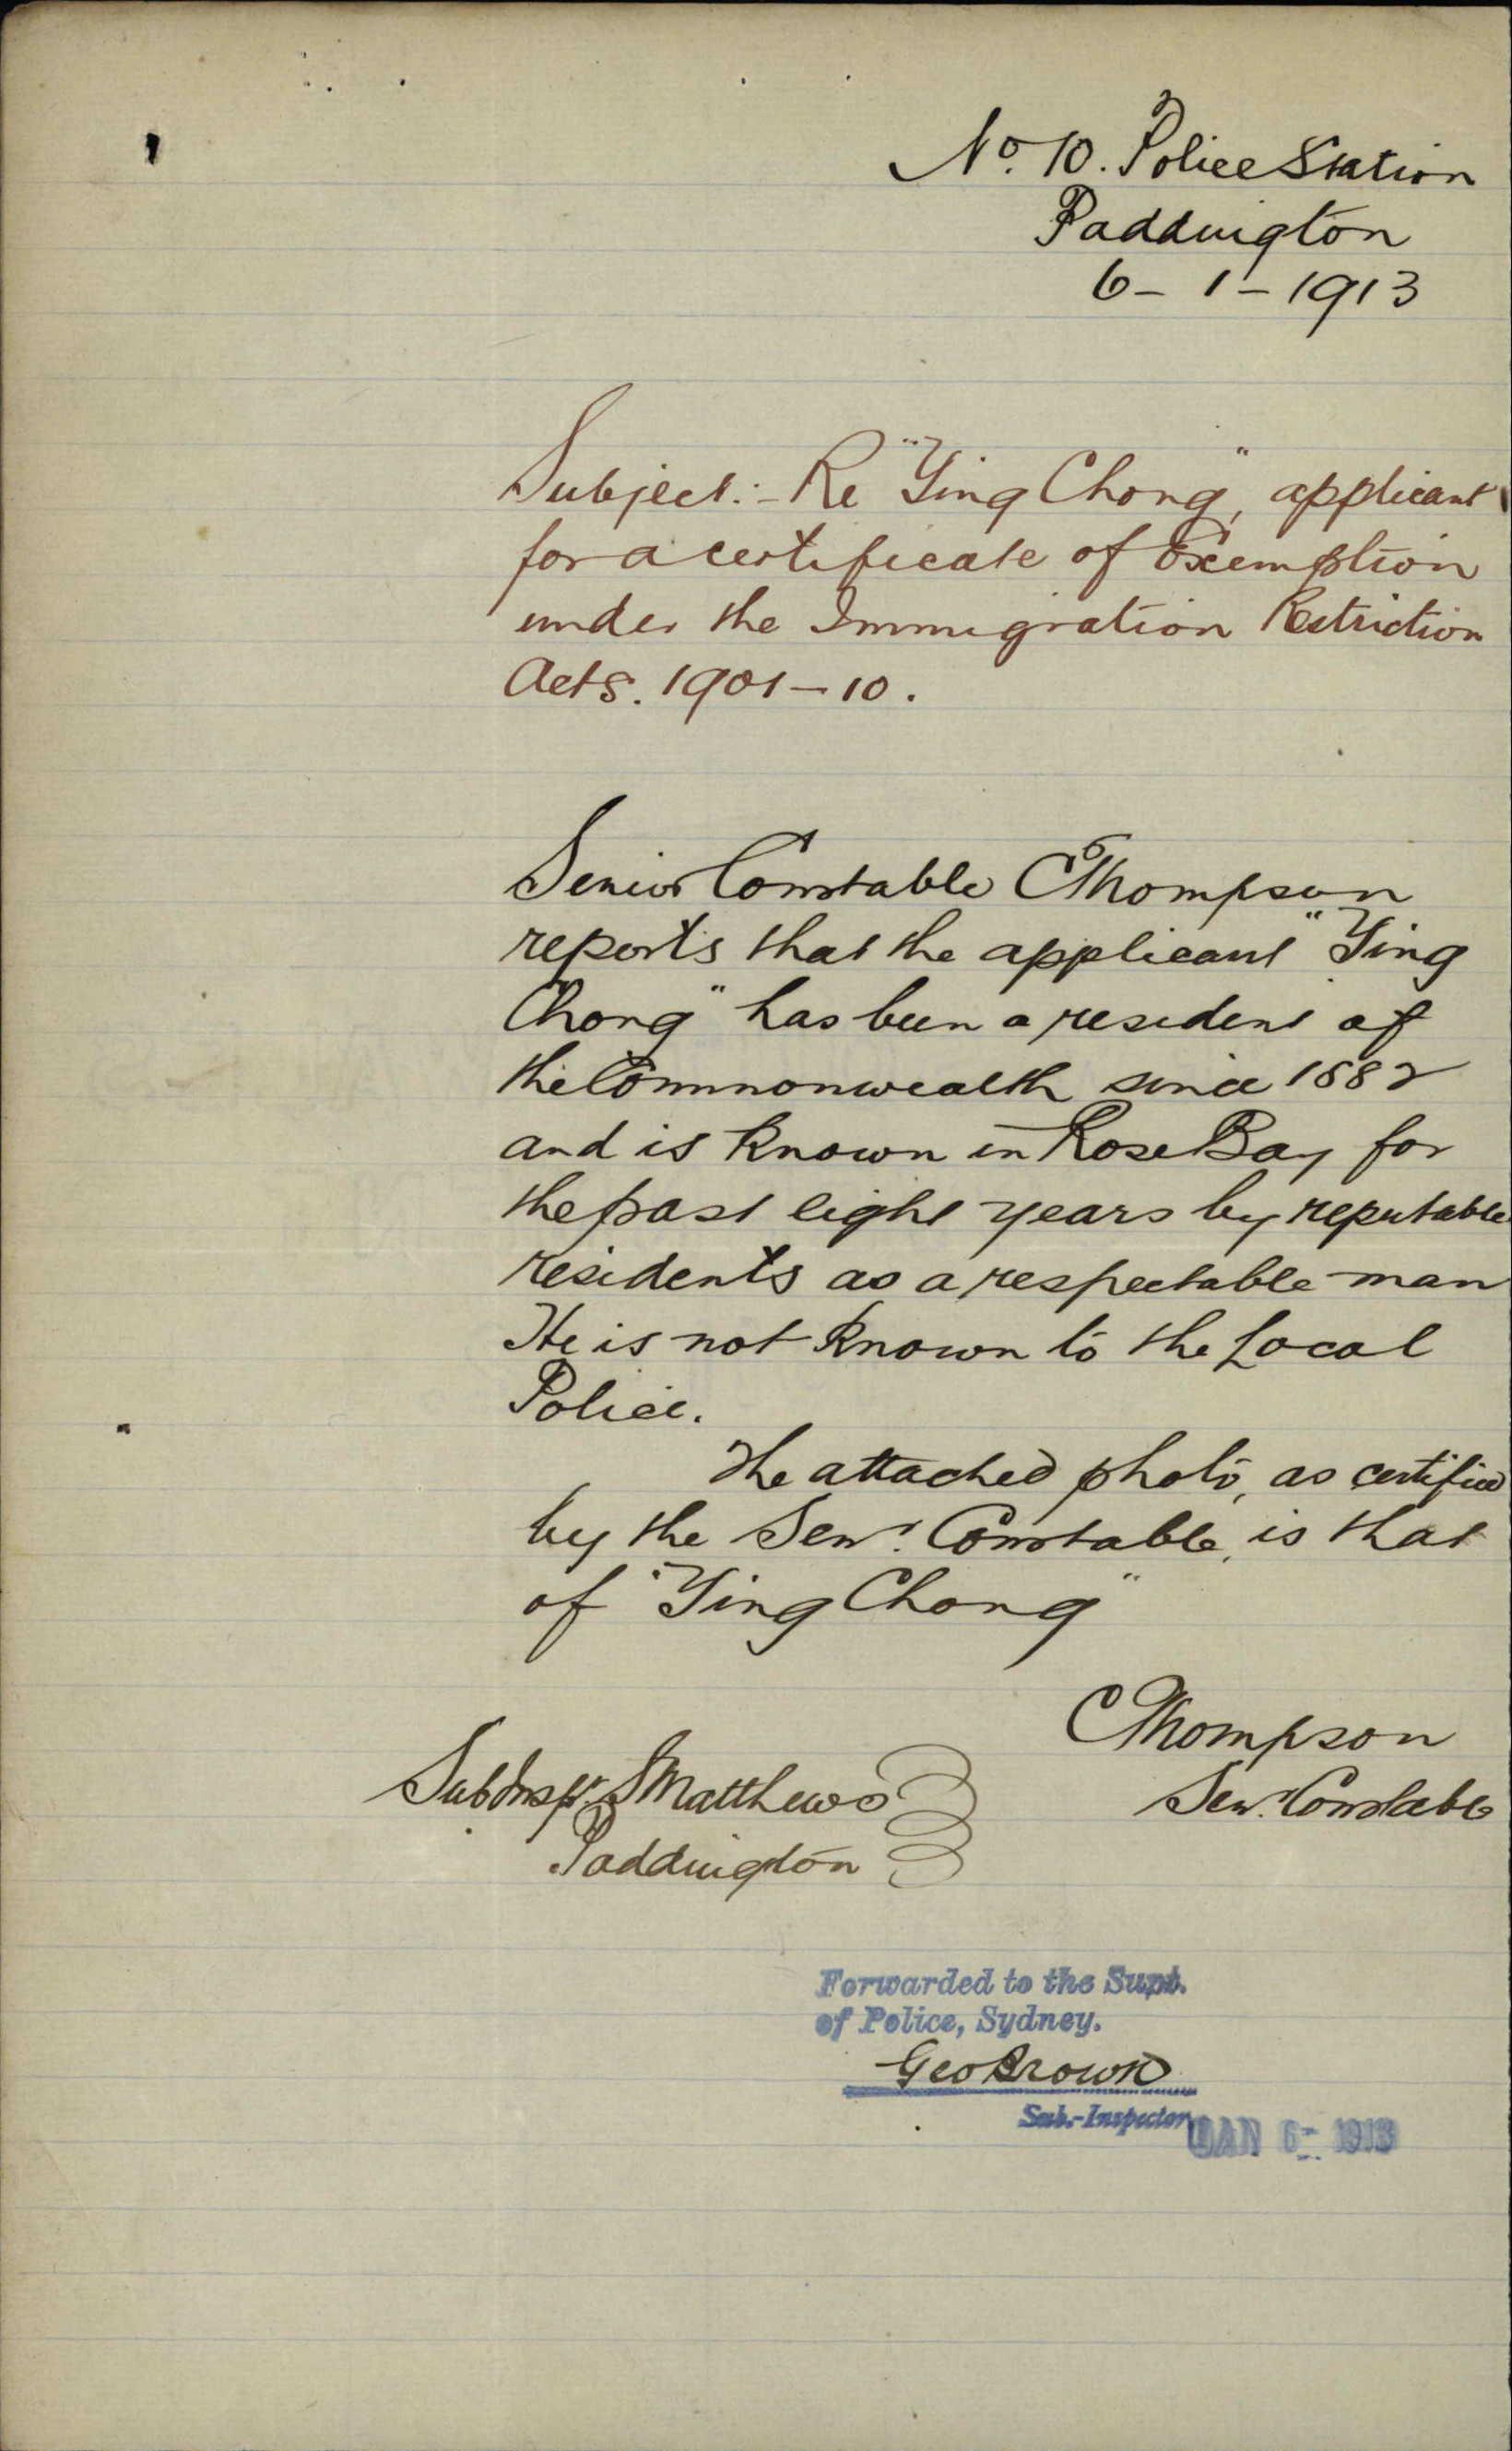 No. 10. Police Station
Paddington
6 - 1 - 1913
Subject:- Re "Ying Chong", applicant
for a certificate of Exemption
under the Immigration Restriction
Acts. 1901-10.
Senior Constable C Thompson
reports that the applicant "Ying
Chong" has been a resident of
the Commonwealth since 1882
and is known in Rose Bay for
the past eight years by reputable
residents as a respectable man
He is not known to the Local
Police.
The attached photo, as certified
by the Senr. Constable, is that
of "Ying Chong"
C Thompson
Senr. Constable
Sub Inspr. Matthews
Paddington
Forwarded to the Supt.
of Police, Sydney.
Geo Brown
Sub.-Inspector
JAN 6- 1913